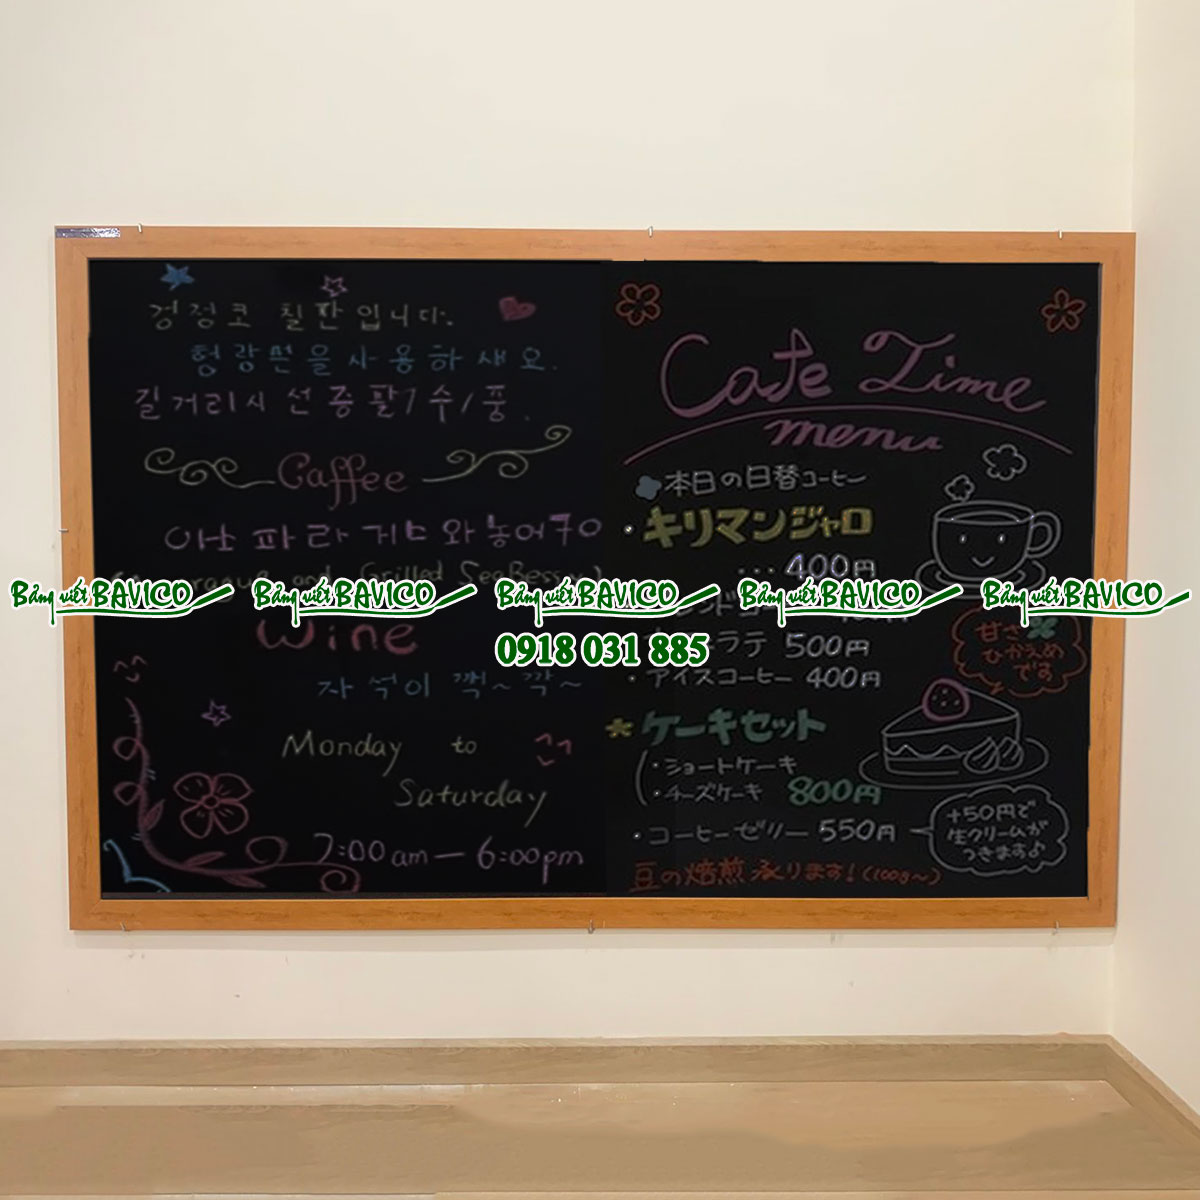 겅정코 칠판입니다.
형광펜을사용하새요.
길거리시선종팔7수/풍.
Caffee
and Grilled SeeBessy)
Wine
자석이 쩍~각~
Monday to
Saturday
7:00am—6:00pm
Cafe Time
menu
本日の日替コーヒー
キリマンジャロ
…400円
ラテ 500円
・アイスコーヒー 400円
甘さ
ひかえめ
です
*ケーキセット
・ショートケーキ
・チーズケーキ 800円
・コーヒーゼリー 550円
+50円で
生クリームが
つきます♪
豆の焙煎承ります!(100g~)
Bảng viết BAVICO Bảng viết BAVICO Bảng viết BAVICO Bảng viết BAVICO Bảng viết BAVICO
0918 031 885